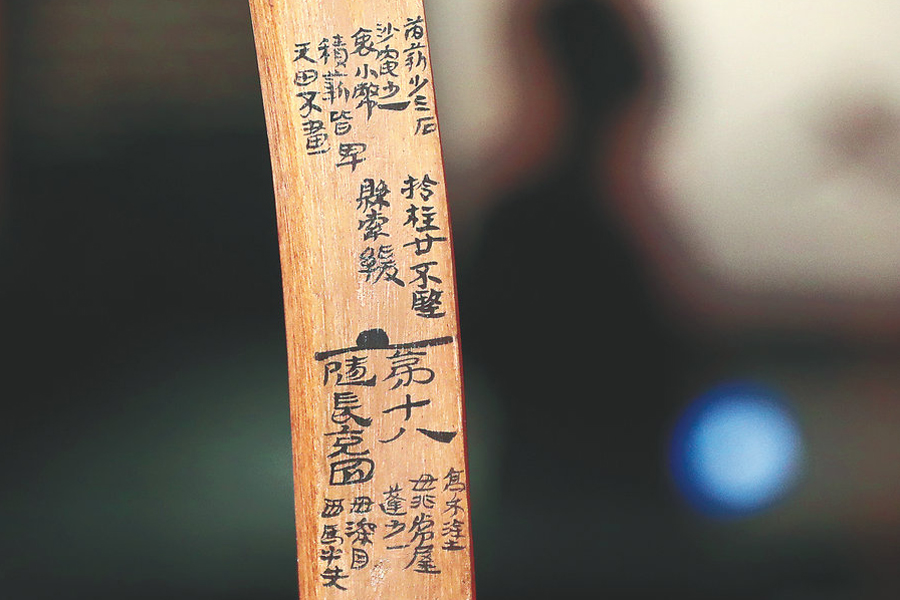 芮薪少三石
沙竈少一
表小幣
積薪皆卑
天田不畫
柃柱廿不堅
縣索緩
第十八
隧長充國
毋非常屋
蓬少一
毋深目
毋馬牛矢